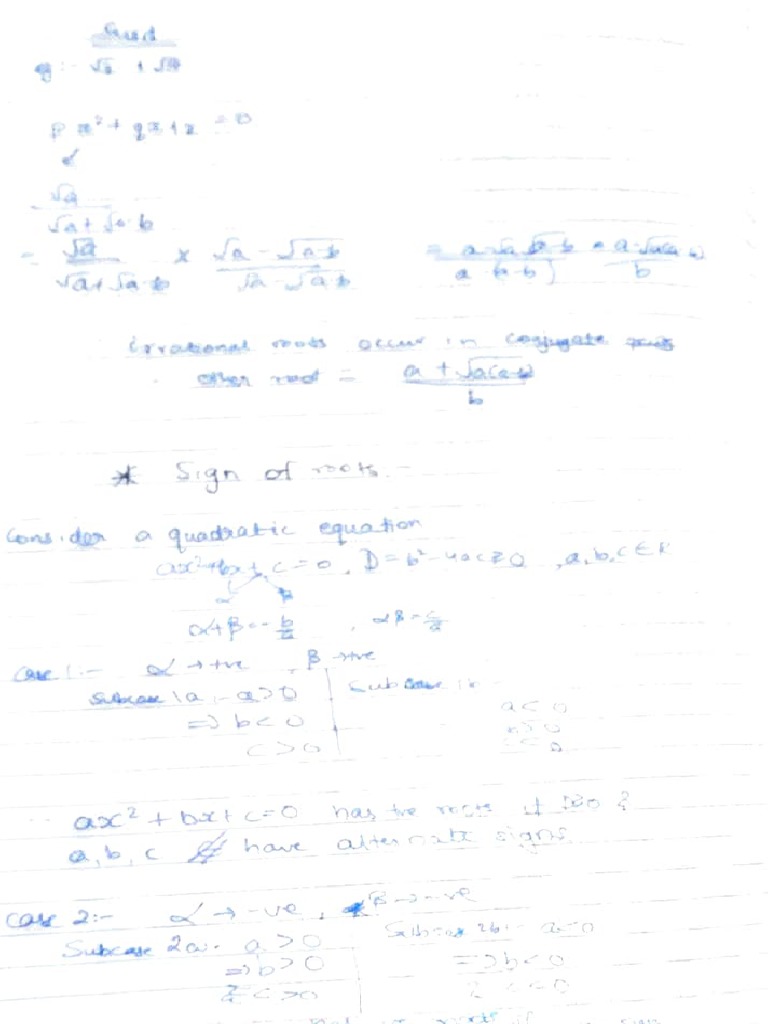 px² + qx + r = 0
√a
√a + √a-b
= √a / (√a + √a-b) × (√a - √a-b) / (√a - √a-b) = (a - √a √a-b) / (a - (a-b)) = (a - √a(a-b)) / b
irrational roots occur in conjugate pairs
other root = (a + √a(a-b)) / b
* Sign of roots -
Consider a quadratic equation
ax² + bx + c = 0, D = b² - 4ac ≥ 0, a, b, c ∈ R
α β
α + β = -b/a , αβ = c/a
Case 1:- α → +ve , β → +ve
Subcase 1a:- a > 0
⇒ b < 0
c > 0
Subcase 1b:-
a < 0
b > 0
c < 0
ax² + bx + c = 0 has +ve roots if D ≥ 0 &
a, b, c have alternate signs
Case 2:- α → -ve, β → -ve
Subcase 2a:- a > 0
⇒ b > 0
& c > 0
Subcase 2b:- a < 0
⇒ b < 0
& c < 0
roots if sign